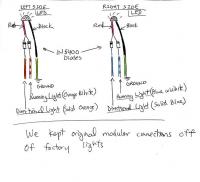 LEFT SIDE
LED
RIGHT SIDE
LED
Red
Black
Red
Black
IN5400
Diodes
GROUND
GROUND
Running Light (Orange & White)
Running Light (Blue & White)
Directional Light (Solid Orange)
Directional Light (Solid Blue)
We kept original modular connections off
of factory lights